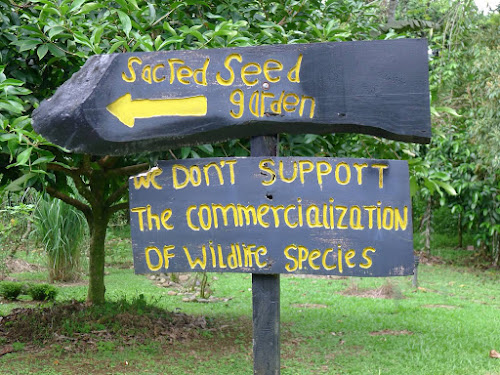 Sacred Seed
garden
We DON'T SUPPORT
The commercialization
OF Wildlife Species